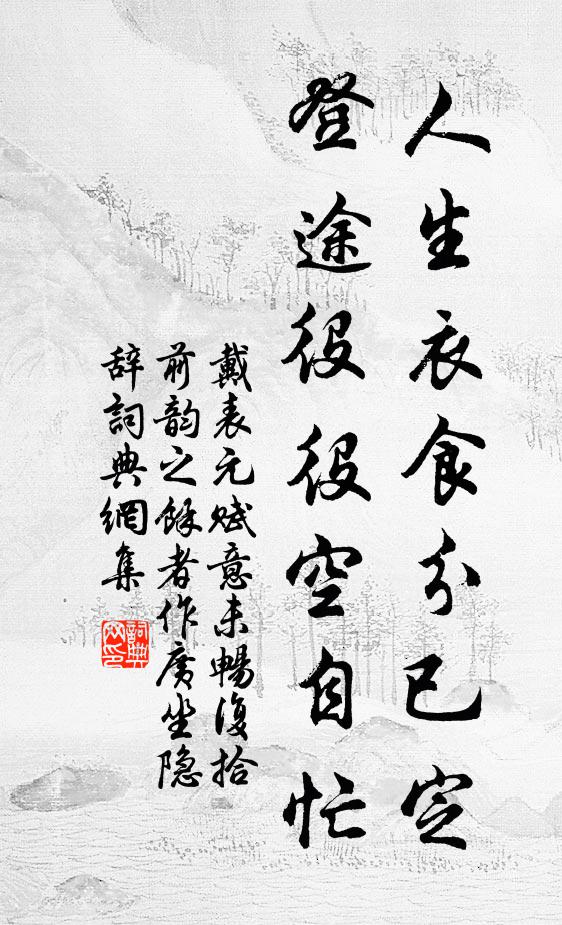 人生衣食分已定
登途役役空自忙
戴表元赋意未暢復拾
前韵之餘者作廣坐隐
辞詞典網集
詞典网印